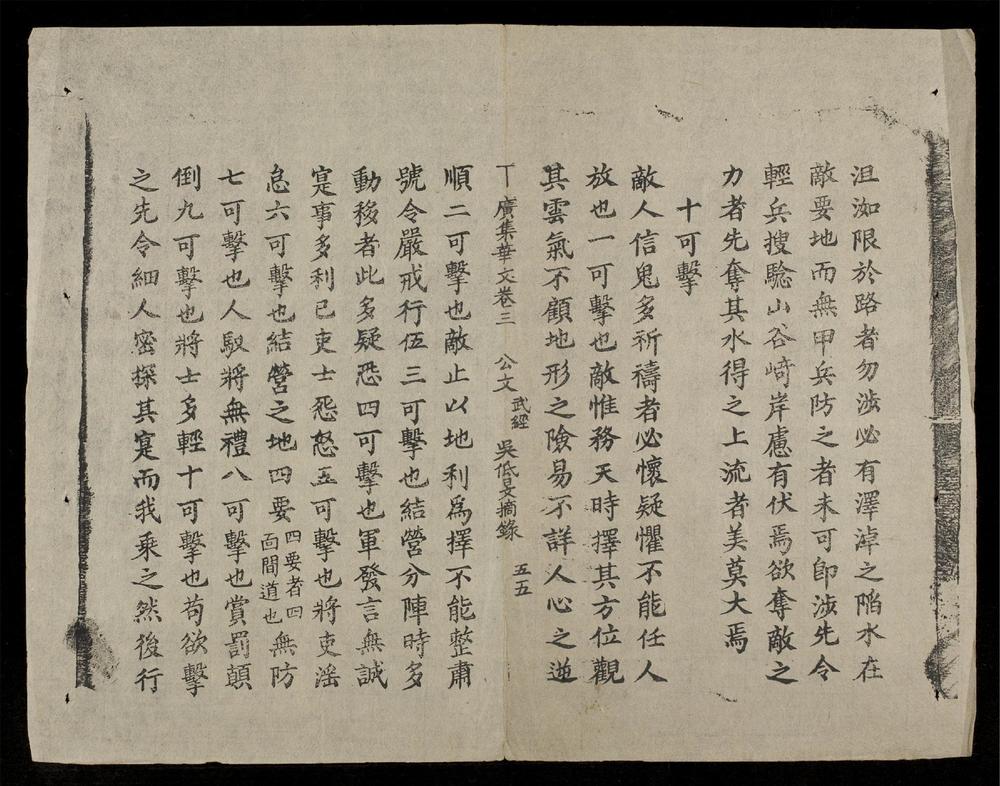 沮洳限於路者勿涉必有澤淖之陷水在
敵要地而無甲兵防之者未可即涉先令
輕兵搜騐山谷﨑岸慮有伏焉欲奪敵之
力者先奪其水得之上流者美莫大焉
十可擊
敵人信鬼多祈禱者必懷疑懼不能任人
放也一可擊也敵惟務天時擇其方位觀
其雲氣不顧地形之險易不詳人心之逆
丅廣集華文卷三 公文 武經 吳低旻摘錄 五五
順二可擊也敵止以地利爲擇不能整肅
號令嚴戒行伍三可擊也結營分陣時多
動移者此多疑恐四可擊也軍發言無誠
寔事多利已吏士怨怒五可擊也將吏滛
怠六可擊也結營之地四要 四要者四面間道也 無防
七可擊也人馭將無禮八可擊也賞罰顛
倒九可擊也將士多輕十可擊也苟欲擊
之先令細人密探其寔而我乘之然後行